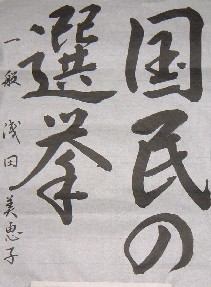 国民の
選挙
一般 浅田美恵子